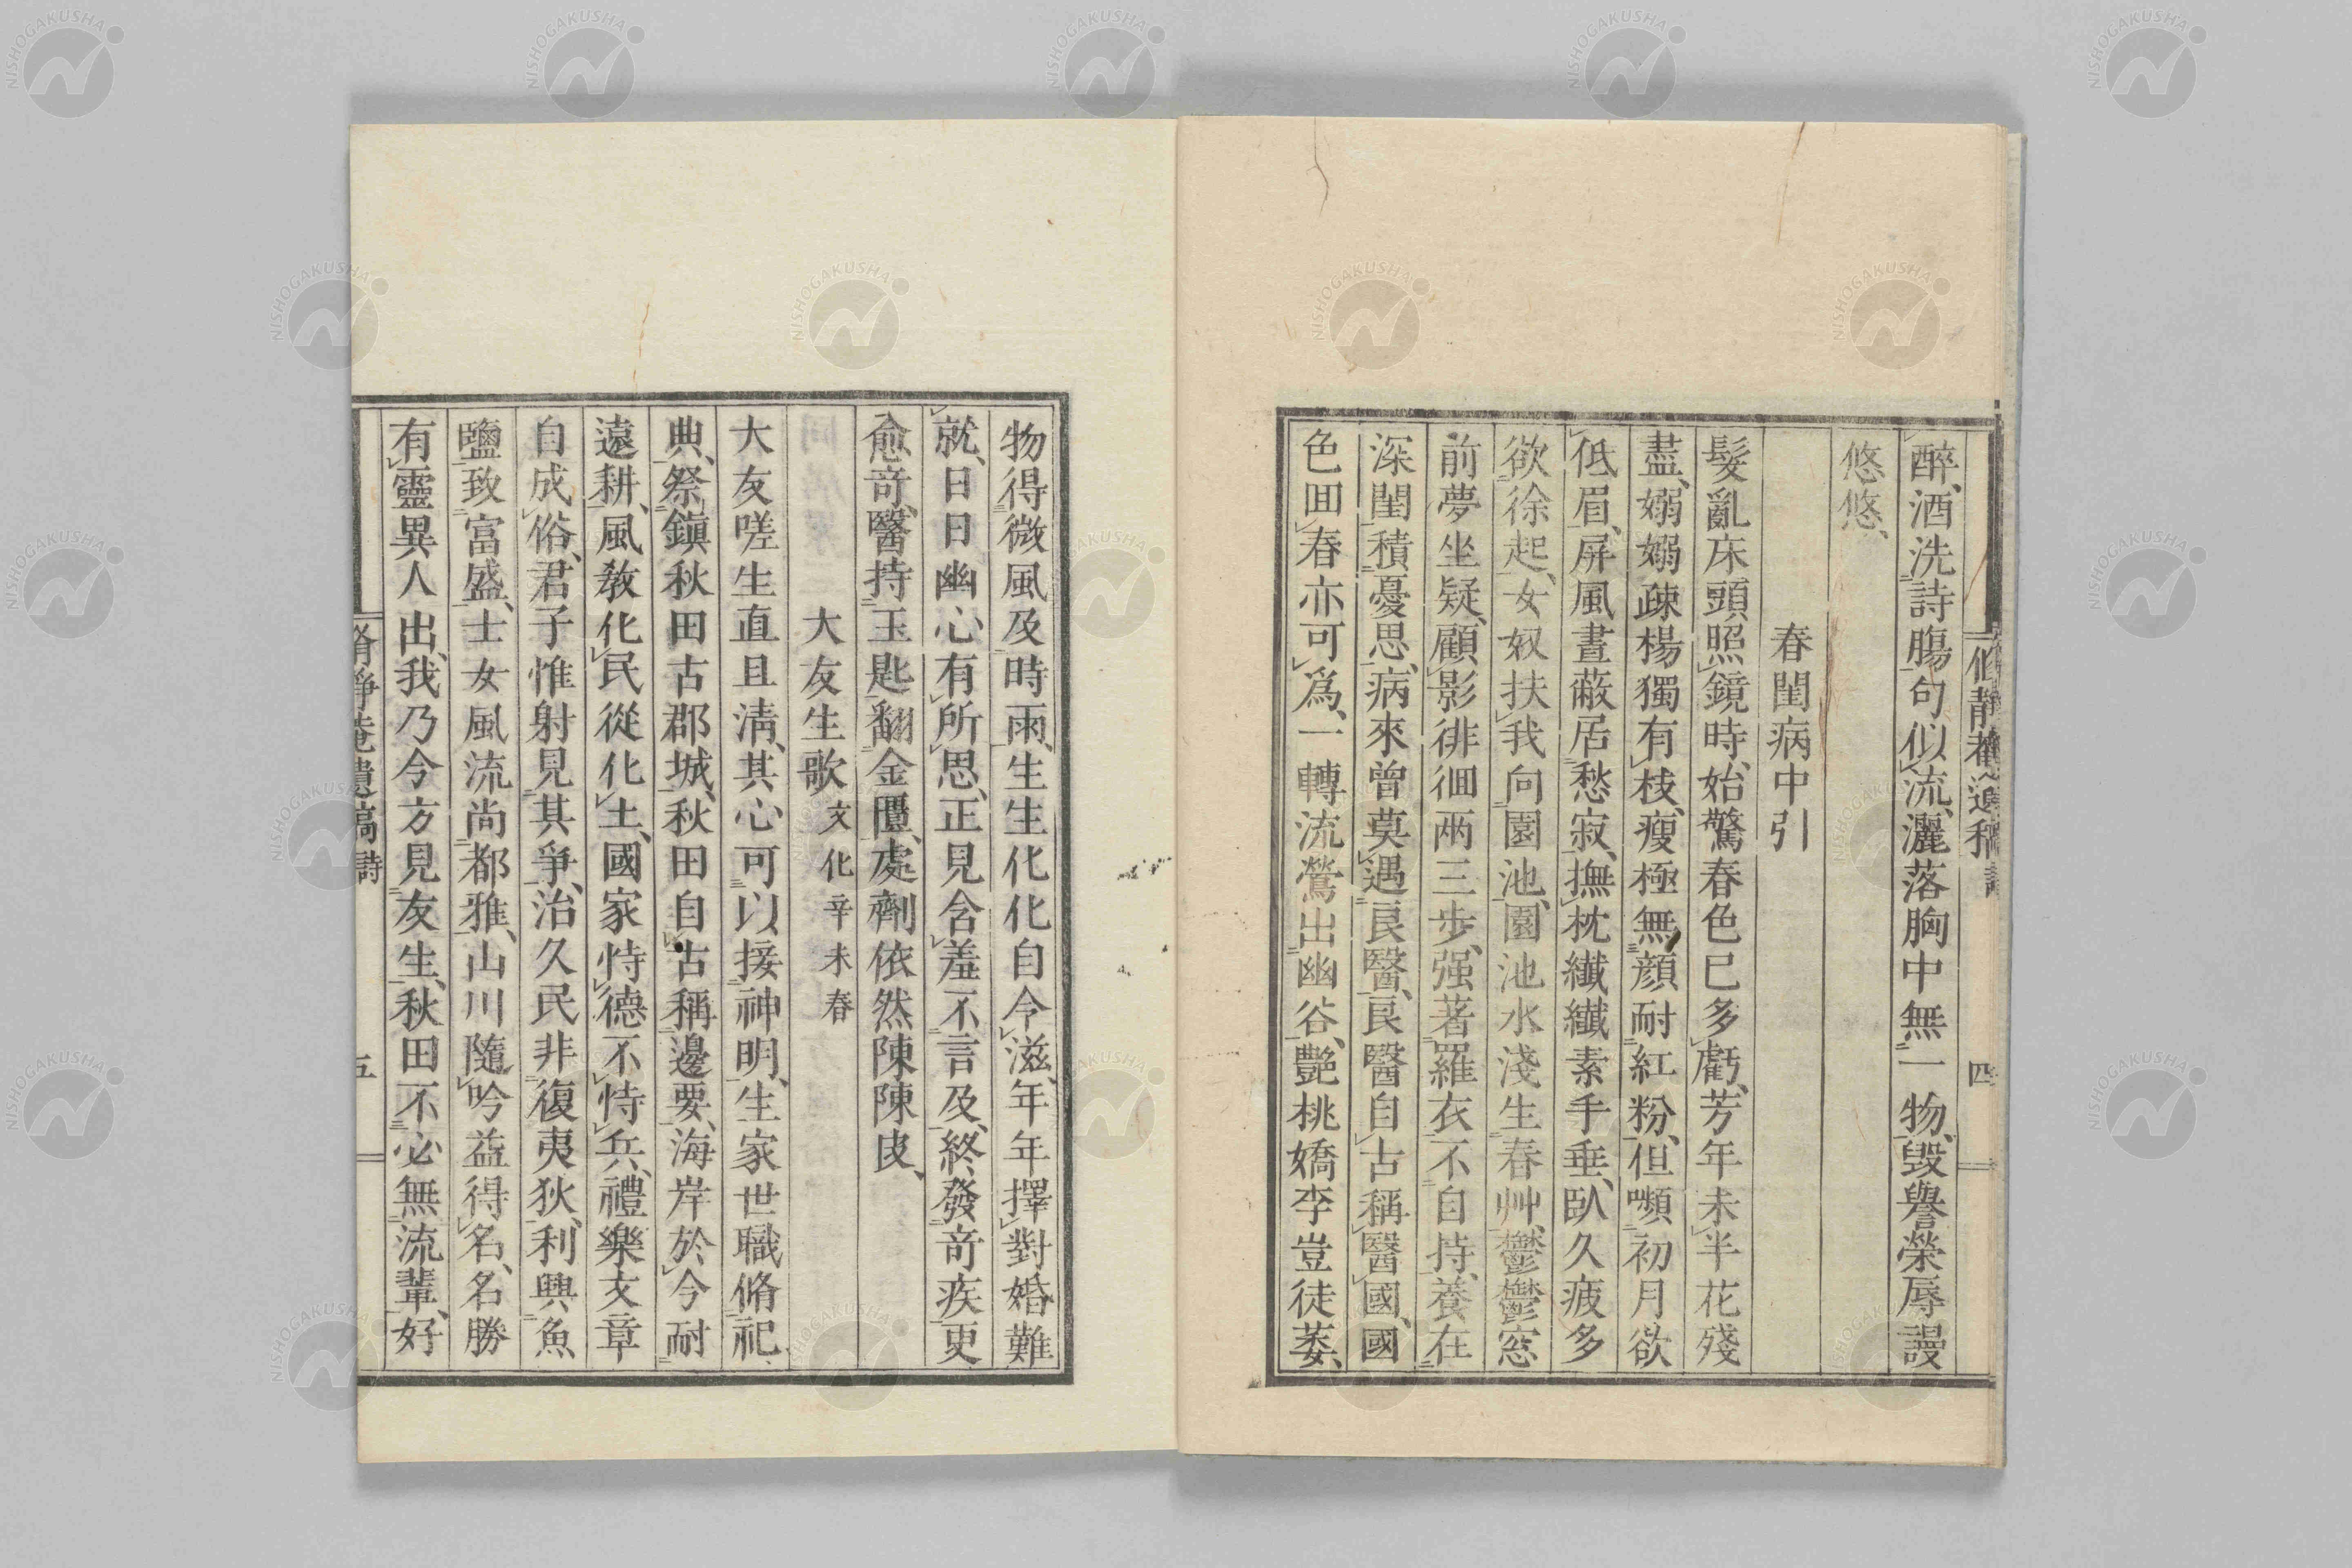 脩靜菴遺稿 詩 四
醉、酒洗詩腸句似流、灑落胸中無一物、毀譽榮辱謾
悠悠、
春閨病中引
髮亂床頭照鏡時、始驚春色已多虧、芳年未半花殘
盡、嫋嫋疎楊獨有枝、瘦極無顏耐紅粉、但嚬初月欲
低眉、屏風晝蔽居愁寂、撫枕纖纖素手垂、臥久疲多
欲徐起、女奴扶我向園池、園池水淺生春艸、鬱鬱窓
前夢坐疑、顧影徘徊兩三步、强著羅衣不自持、養在
深閨積憂思、病來曾莫遇良醫、良醫自古稱醫國、國
色囬春亦可爲、一轉流鶯出幽谷、艷桃嬌李豈徒萎、
物得微風及時雨、生生化化自今滋、年年擇對婚難
就、日日幽心有所思、正見含羞不言及、終發奇疾更
愈奇、醫持玉匙翻金匱、處劑依然陳陳皮、
大友生歌 文化辛未春
大友嗟生直且淸、其心可以接神明、生家世職脩祀
典、祭鎭秋田古郡城、秋田自古稱邊要、海岸於今耐
遠耕、風敎化民從化土、國家恃德不恃兵、禮樂文章
自成俗、君子惟射見其爭、治久民非復夷狄、利興魚
鹽致富盛、士女風流尚都雅、山川隨吟益得名、名勝
有靈異人出、我乃今方見友生、秋田不必無流輩、好
脩靜菴遺稿 詩 五
NISHOGAKUSHA